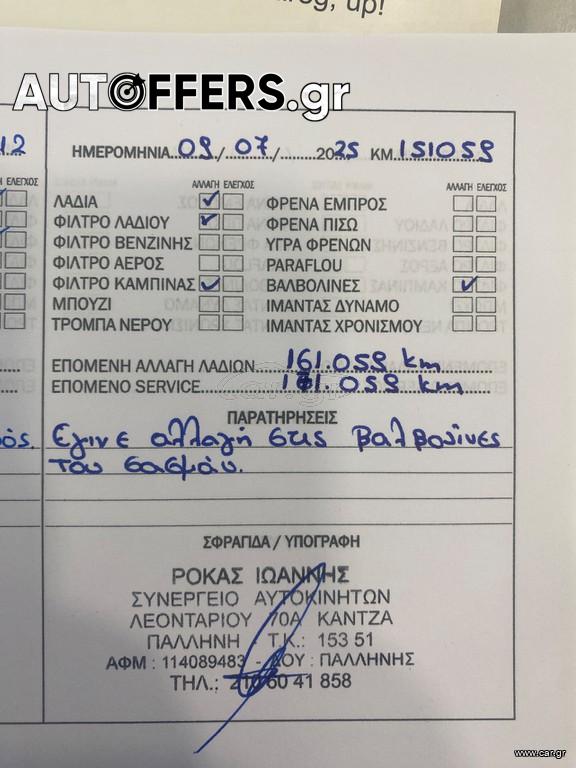 up!
AUTOFFERS.gr
ΗΜΕΡΟΜΗΝΙΑ 09/07/2025 ΚΜ. 151059
ΑΛΛΑΓΗ ΕΛΕΓΧΟΣ ΑΛΛΑΓΗ ΕΛΕΓΧΟΣ
ΛΑΔΙΑ ✓ ΦΡΕΝΑ ΕΜΠΡΟΣ
ΦΙΛΤΡΟ ΛΑΔΙΟΥ ✓ ΦΡΕΝΑ ΠΙΣΩ
ΦΙΛΤΡΟ ΒΕΝΖΙΝΗΣ ΥΓΡΑ ΦΡΕΝΩΝ
ΦΙΛΤΡΟ ΑΕΡΟΣ PARAFLOU
ΦΙΛΤΡΟ ΚΑΜΠΙΝΑΣ ✓ ΒΑΛΒΟΛΙΝΕΣ ✓
ΜΠΟΥΖΙ ΙΜΑΝΤΑΣ ΔΥΝΑΜΟ
ΤΡΟΜΠΑ ΝΕΡΟΥ ΙΜΑΝΤΑΣ ΧΡΟΝΙΣΜΟΥ
ΕΠΟΜΕΝΗ ΑΛΛΑΓΗ ΛΑΔΙΩΝ 161.059 km
ΕΠΟΜΕΝΟ SERVICE 171.059 km
car.gr
ΠΑΡΑΤΗΡΗΣΕΙΣ
Εγινε αλλαγή στις βαλβολίνες
του σασμάν.
ΣΦΡΑΓΙΔΑ / ΥΠΟΓΡΑΦΗ
ΡΟΚΑΣ ΙΩΑΝΝΗΣ
ΣΥΝΕΡΓΕΙΟ ΑΥΤΟΚΙΝΗΤΩΝ
ΛΕΟΝΤΑΡΙΟΥ 70Α ΚΑΝΤΖΑ
ΠΑΛΛΗΝΗ - Τ.Κ.: 153 51
ΑΦΜ : 114089483 - ΔΟΥ : ΠΑΛΛΗΝΗΣ
ΤΗΛ.: 210 60 41 858
www.car.gr